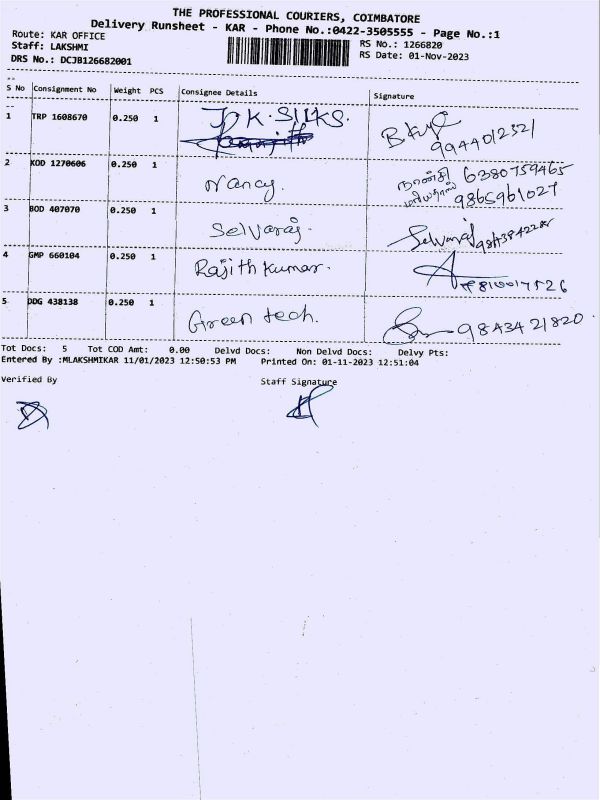 THE PROFESSIONAL COURIERS, COIMBATORE
Delivery Runsheet - KAR - Phone No.:0422-3505555 - Page No.:1
Route: KAR OFFICE
RS No.: 1266820
Staff: LAKSHMI
RS Date: 01-Nov-2023
DRS No.: DCJB126682001
S No Consignment No Weight PCS Consignee Details Signature
1 TRP 1608670 0.250 1 J.K. SILKS.
9944012321
2 KOD 1270606 0.250 1 Nancy. நான்சி 6380759465
9865961027
3 BOD 407070 0.250 1 Selvaraj. Selvaraj
4 GMP 660104 0.250 1 Rajith kumar.
5 DDG 438138 0.250 1 Green tech. 9843421820
Tot Docs: 5 Tot COD Amt: 0.00 Delvd Docs: Non Delvd Docs: Delvy Pts:
Entered By :MLAKSHMIKAR 11/01/2023 12:50:53 PM Printed On: 01-11-2023 12:51:04
Verified By Staff Signature